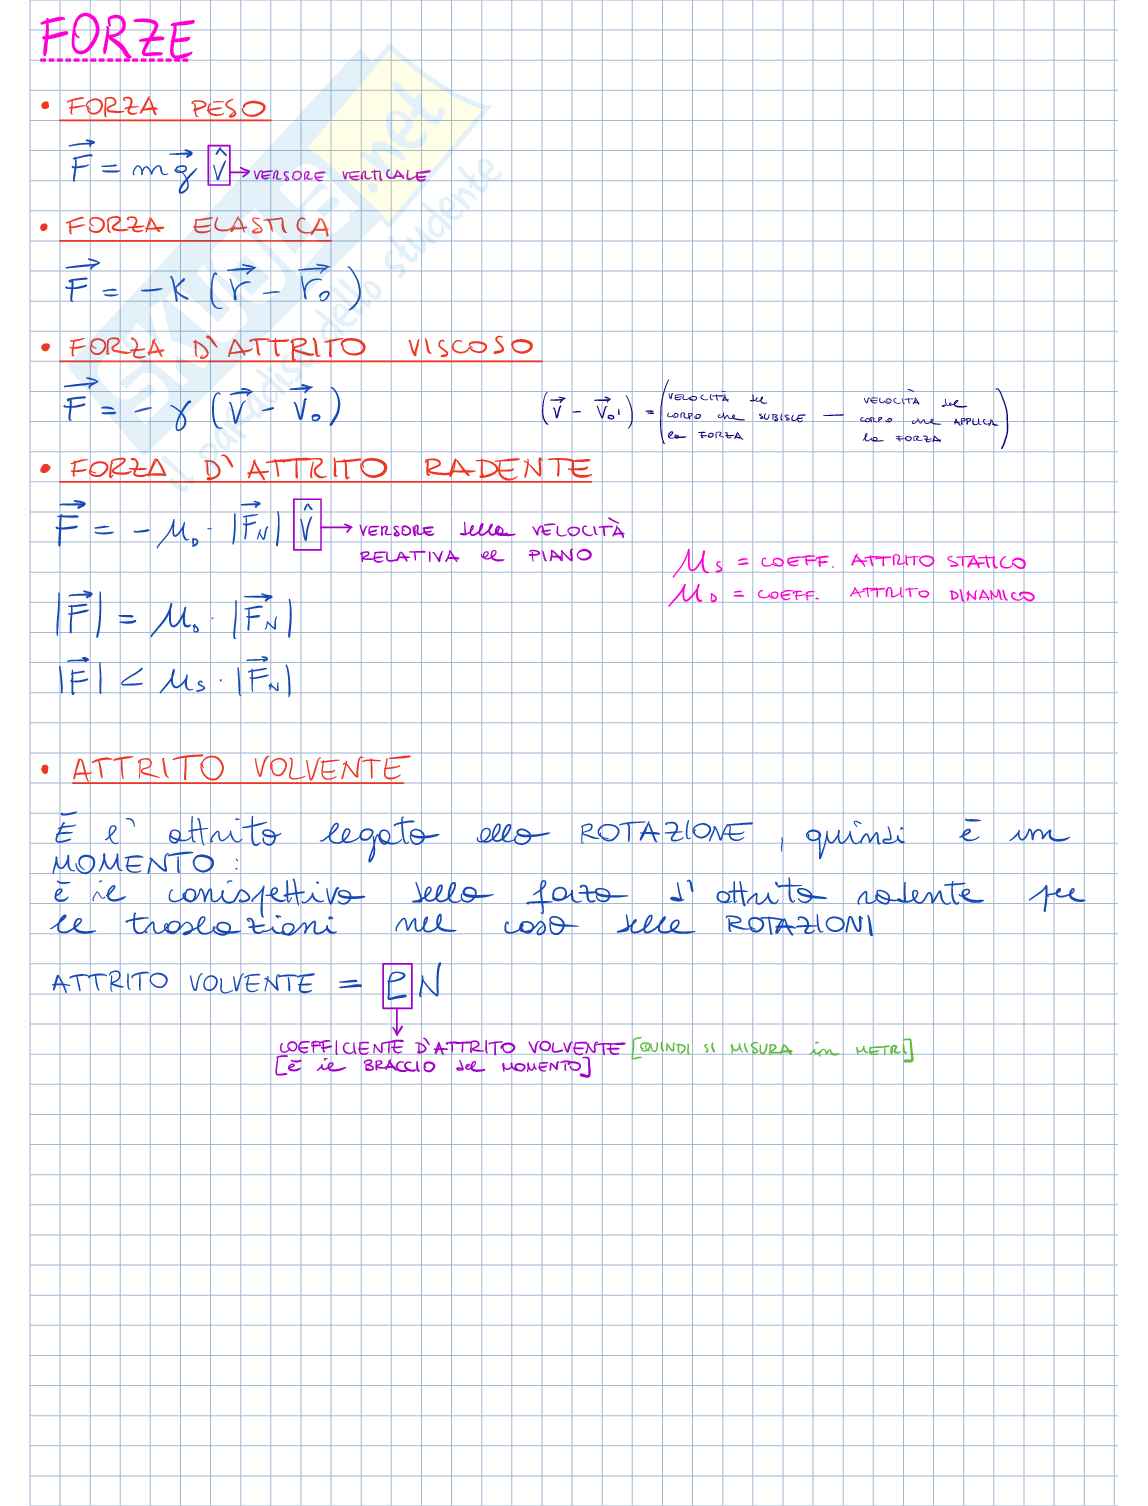 FORZE
• FORZA PESO
F⃗ = m g⃗ v̂ → VERSORE VERTICALE
• FORZA ELASTICA
F⃗ = -K (r⃗ - r⃗₀)
• FORZA D'ATTRITO VISCOSO
F⃗ = - γ (v⃗ - v⃗₀)
(v⃗ - v⃗₀') = (VELOCITÀ del CORPO che SUBISCE la FORZA — VELOCITÀ del CORPO che APPLICA la FORZA)
• FORZA D'ATTRITO RADENTE
F⃗ = - μ_D · |F⃗_N| v̂ → VERSORE della VELOCITÀ
RELATIVA al PIANO
μ_S = COEFF. ATTRITO STATICO
μ_D = COEFF. ATTRITO DINAMICO
|F⃗| = μ_D · |F⃗_N|
|F⃗| < μ_S · |F⃗_N|
• ATTRITO VOLVENTE
È l'attrito legato alla ROTAZIONE, quindi è un
MOMENTO:
è il corrispettivo della forza d'attrito radente per
le traslazioni nel caso delle ROTAZIONI
ATTRITO VOLVENTE = e N
COEFFICIENTE D'ATTRITO VOLVENTE [QUINDI SI MISURA in METRI]
[è il BRACCIO del MOMENTO]
SKUOLA.net
il paradiso dello studente